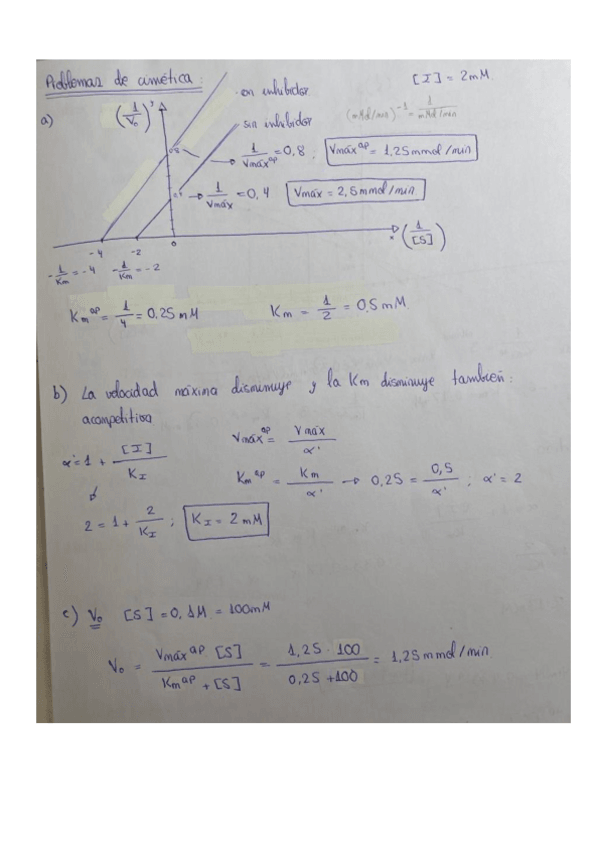 Problemas de cinética:
[I] = 2mM
a) (1/V₀)
con inhibidor
sin inhibidor
(mMol/min)⁻¹ = 1/mMol/min
0,8 → 1/Vmáxᵃᵖ = 0,8 ; Vmáxᵃᵖ = 1,25 mmol/min
→ 1/Vmáx = 0,4 Vmáx = 2,5 mmol/min
-4 -2 0 (1/[S])
-1/Km = -4 -1/Km = -2
Kmᵃᵖ = 1/4 = 0,25 mM Km = 1/2 = 0,5 mM
b) La velocidad máxima disminuye y la Km disminuye también:
acompetitiva
α' = 1 + [I]/K_I Vmáxᵃᵖ = Vmáx/α'
Kmᵃᵖ = Km/α' → 0,25 = 0,5/α' ; α' = 2
2 = 1 + 2/K_I ; K_I = 2 mM
c) V₀ [S] = 0,1M = 100mM
V₀ = Vmáxᵃᵖ [S]/Kmᵃᵖ + [S] = 1,25 · 100/0,25 + 100 = 1,25 mmol/min